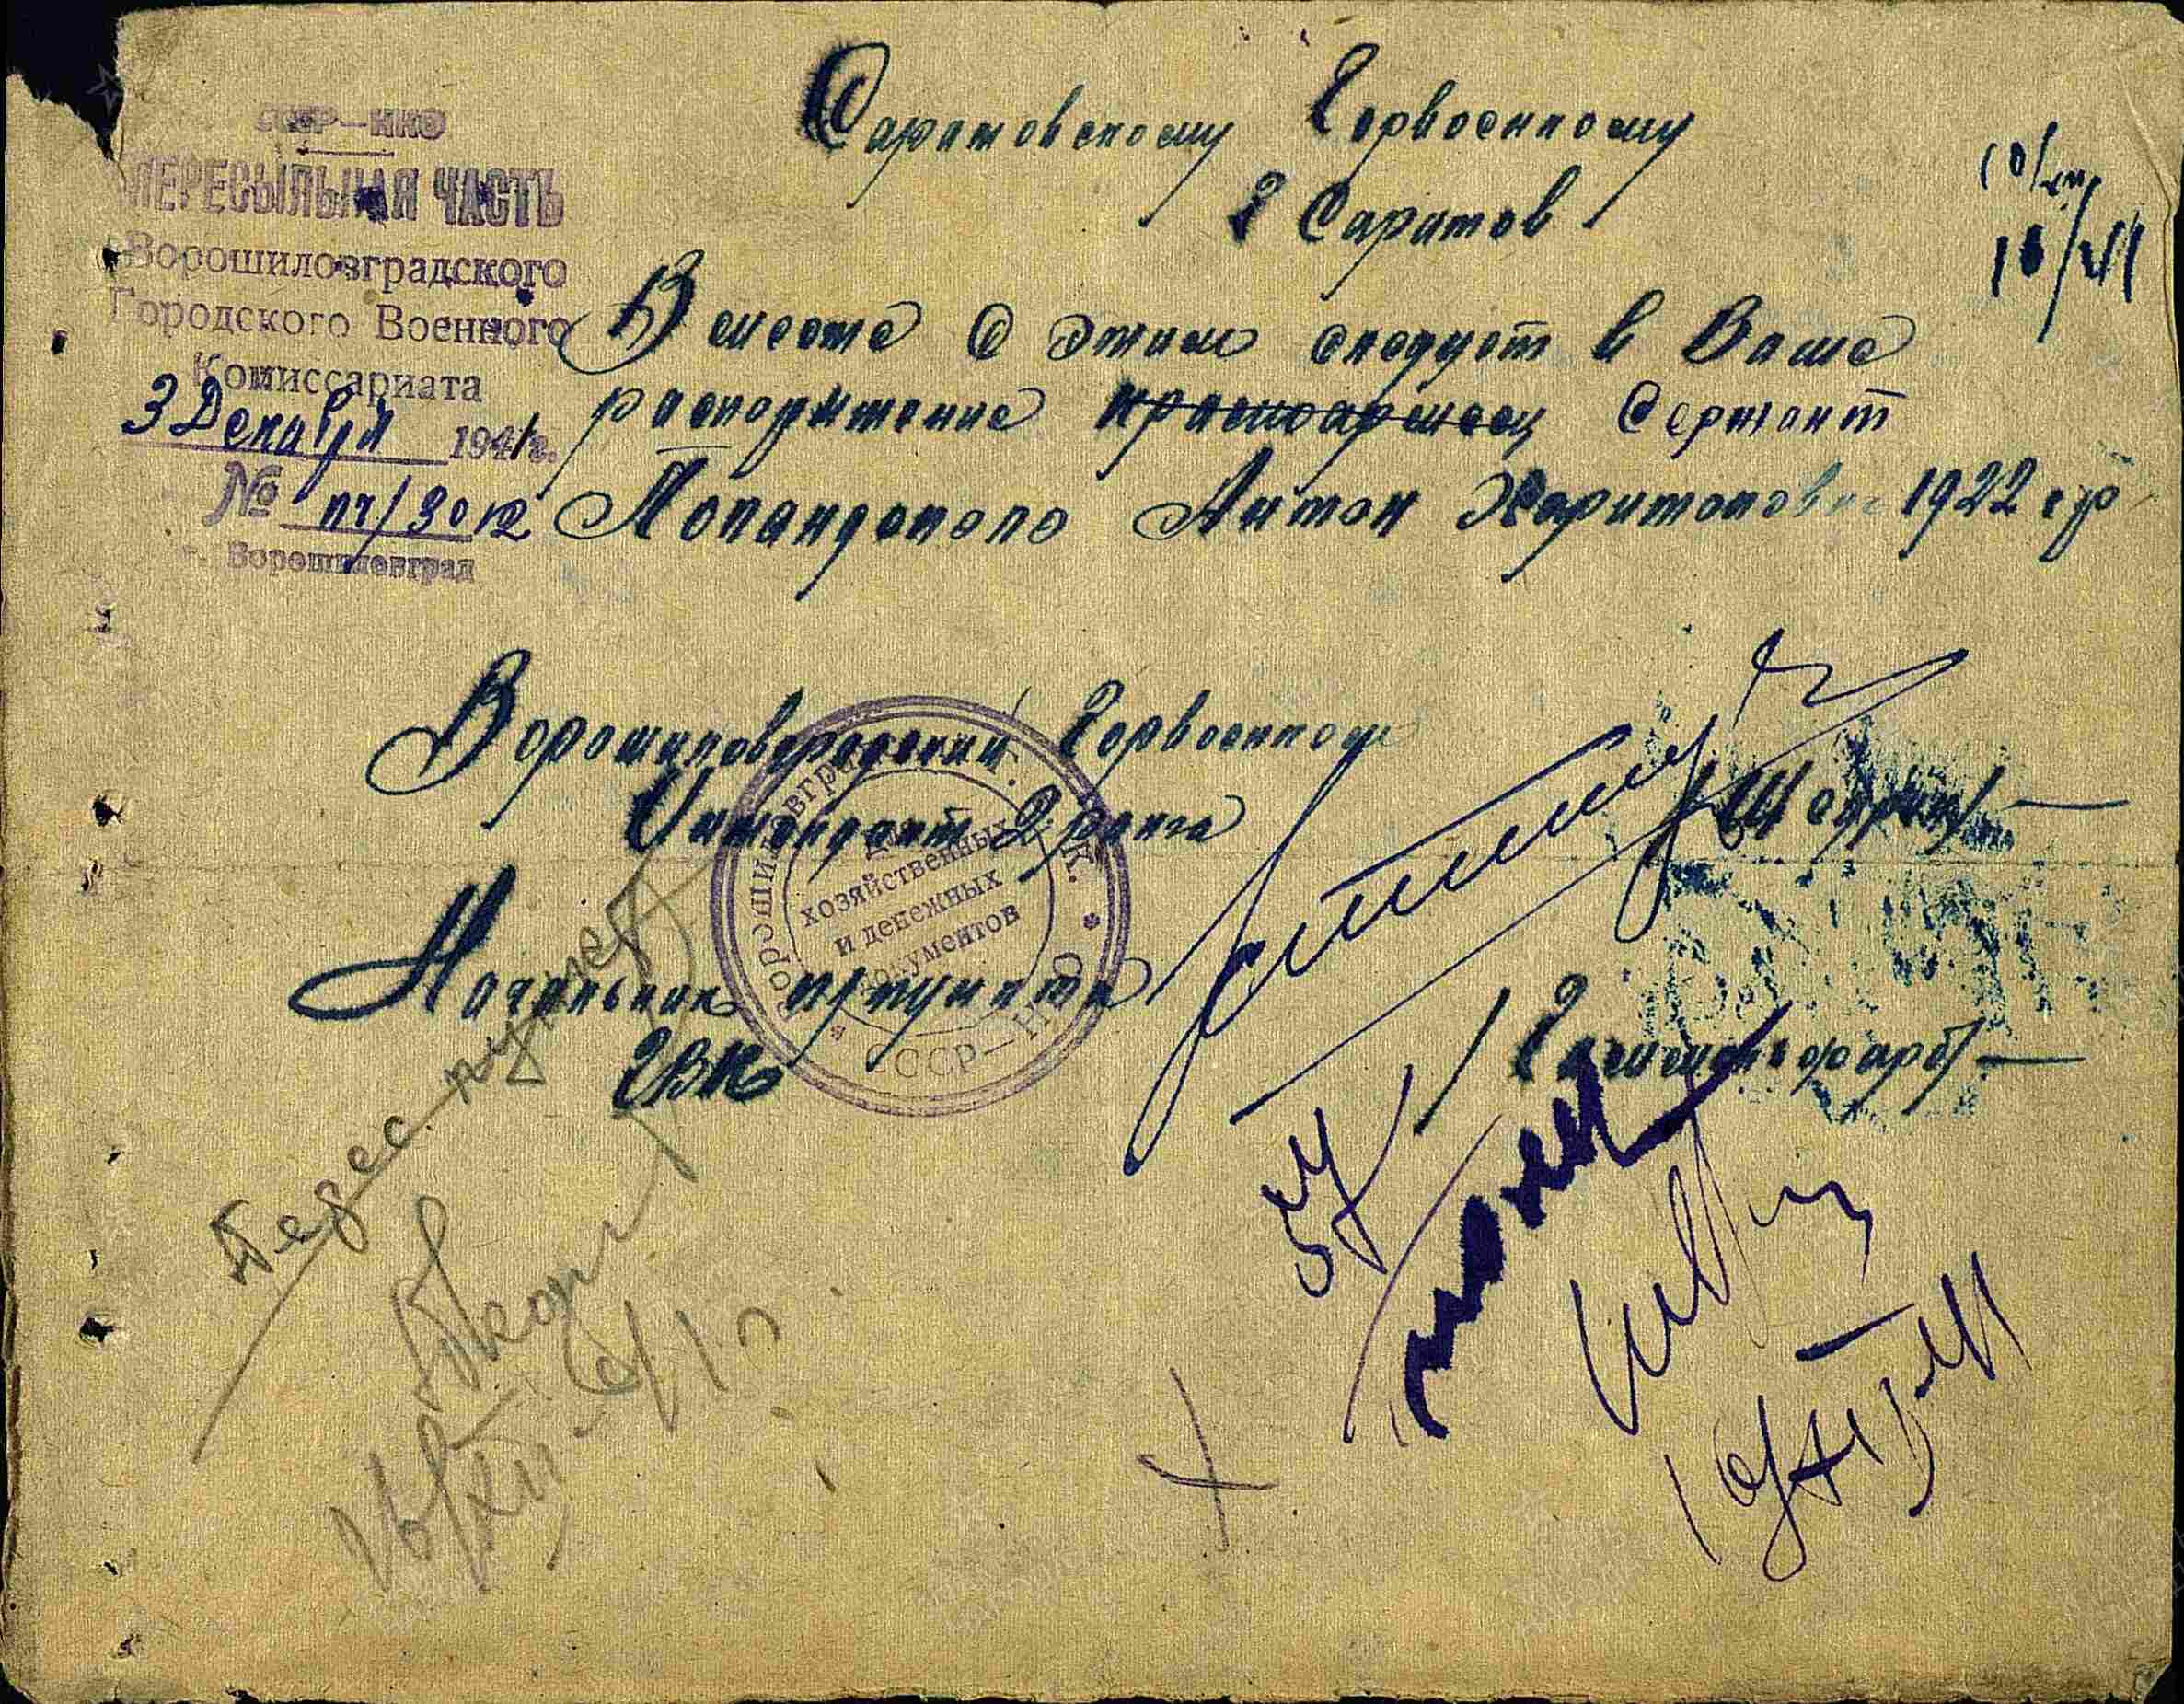 СССР—НКО
ПЕРЕСЫЛЬНАЯ ЧАСТЬ
Ворошиловградского
Городского Военного
Комиссариата
3 Декабря 1941г.
№ пч/3012
г. Ворошиловград
Саратовскому Горвоенкому
г Саратов
10/XII
41
Вместе с этим следует в Ваше
распоряжение красноармеец Сержант
Попандополо Антон Харитонович 1922 г р
Ворошиловградский Горвоенком
Интендант 2 ранга
/Щедрин/
Начальник прпункта
ГВК
Ворошиловград Г. В. К.
Для
хозяйственных
и денежных
документов
СССР—НКО
Перес. пункт
16/XII-41 г.
10/XII-41